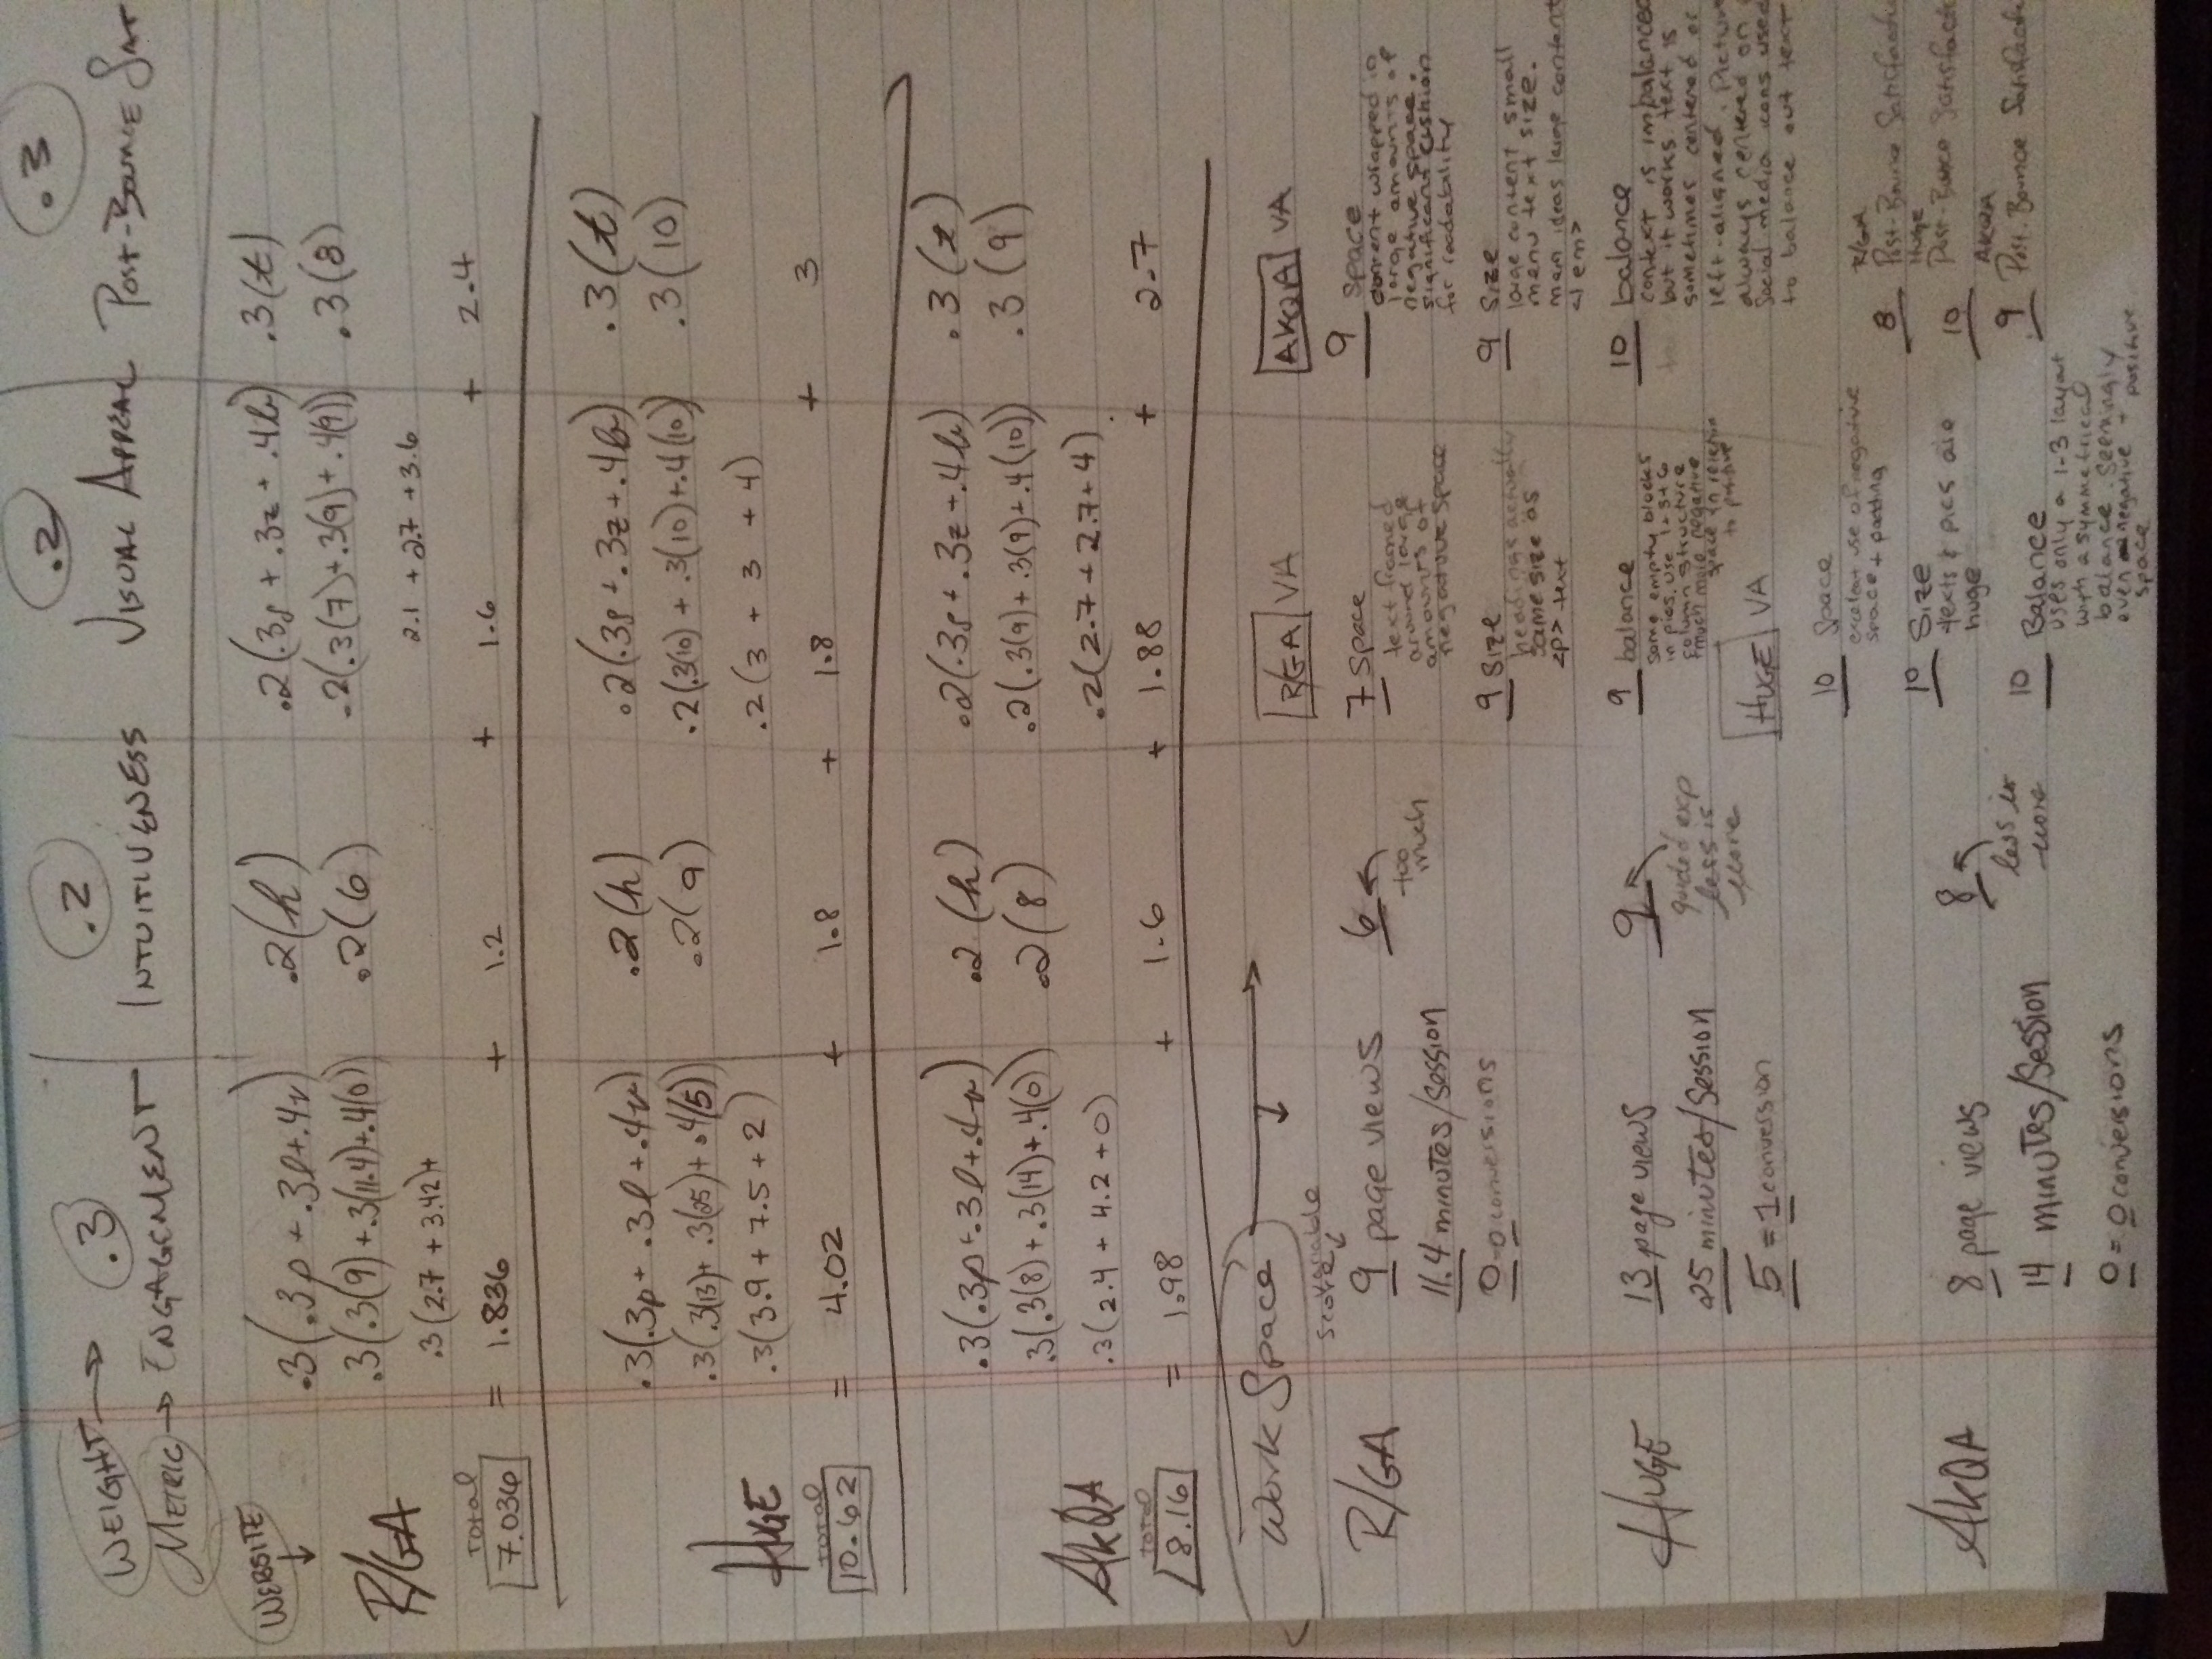 .3 .2 .2 .3
WEIGHT →
METRIC → ENGAGEMENT INTUITIVENESS VISUAL APPEAL POST-BOUNCE SAT
WEBSITE
↓
.3(.3p + .3l+.4v) .2(h) .2(.3s + .3z + .4b) .3(t)
.3(.3(9)+.3(11.4)+.4(0)) .2(6) .2(.3(7)+.3(9)+.4(9)) .3(8)
R/GA
.3(2.7 + 3.42)+ 2.1 + 2.7 + 3.6
Total
7.036 = 1.836 + 1.2 + 1.6 + 2.4
.3(.3p+ .3l+.4v) .2(h) .2(.3s+.3z+.4b) .3(t)
.3(.3(13)+ .3(25)+ .4(5)) .2(9) .2(.3(10) + .3(10)+.4(10)) .3(10)
HUGE
.3(3.9 + 7.5 + 2) .2(3 + 3 + 4)
Total
10.62 = 4.02 + 1.8 + 1.8 + 3
.3(.3p+.3l+.4v) .2(h) .2(.3s+.3z+.4b) .3(t)
.3(.3(8)+.3(14)+.4(0)) .2(8) .2(.3(9)+.3(9)+.4(10)) .3(9)
AKQA
.3(2.4 + 4.2 + 0) .2(2.7+2.7+4)
Total
8.16 = 1.98 + 1.6 + 1.88 + 2.7
Work Space →
↓
score variable
R/GA
9 page views
11.4 minutes/session
0=0 conversions
6
too
much
HUGE
13 page views
25 minutes/session
5 = 1 conversion
9
guided exp
less is
more
AKQA
8 page views
14 minutes/session
0 = 0 conversions
8
less is
more
R/GA VA
7 Space
text framed
around large
amounts of
negative space
9 Size
headings actually
same size as
<p> text
9 balance
some empty blocks
in pics. use 1+3+6
column structure
+much more negative
space in relation
to positive
HUGE VA
10 Space
excelent use of negative
space + padding
10 Size
texts & pics are
huge
10 Balance
uses only a 1-3 layout
with a symmetrical
balance. seemingly
even negative + positive
space
AKQA VA
9 space
content wrapped in
large amounts of
negative space.
significant cushion
for readability
9 Size
large content small
menu text size.
main ideas large content
<1em>
10 balance
context is imbalanced
but it works. text is
sometimes centered or
left-aligned. Pictur
always centered on
Social media icons used
to balance out text
R/GA
8 Post-Bounce Satisfacti
HUGE
10 Post-Bounce Satisfacti
AKQA
9 Post-Bounce Satisfacti